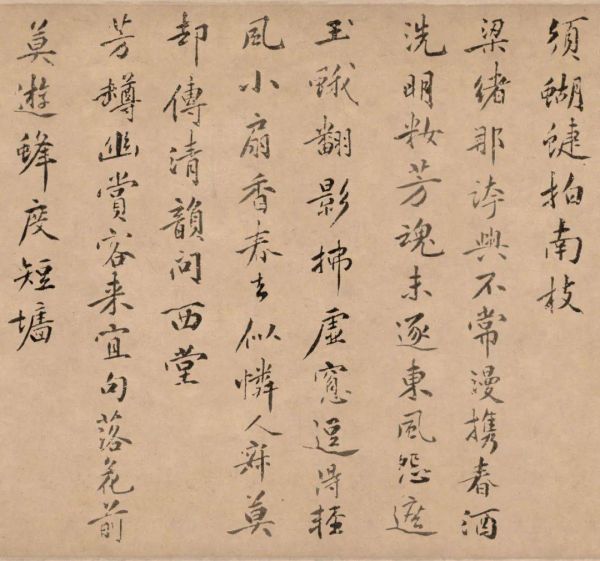 須蝴蝶拍南枝
梁緒那誇興不常漫携春酒
洗明妝芳魂未逐東風怨遮
玉蛾翻影拂虛窗逗得輕
風小扇香春去似憐人寂莫
却傳清韻問西堂
芳樽幽賞客来宜句落花前
莫遊蜂度短墻